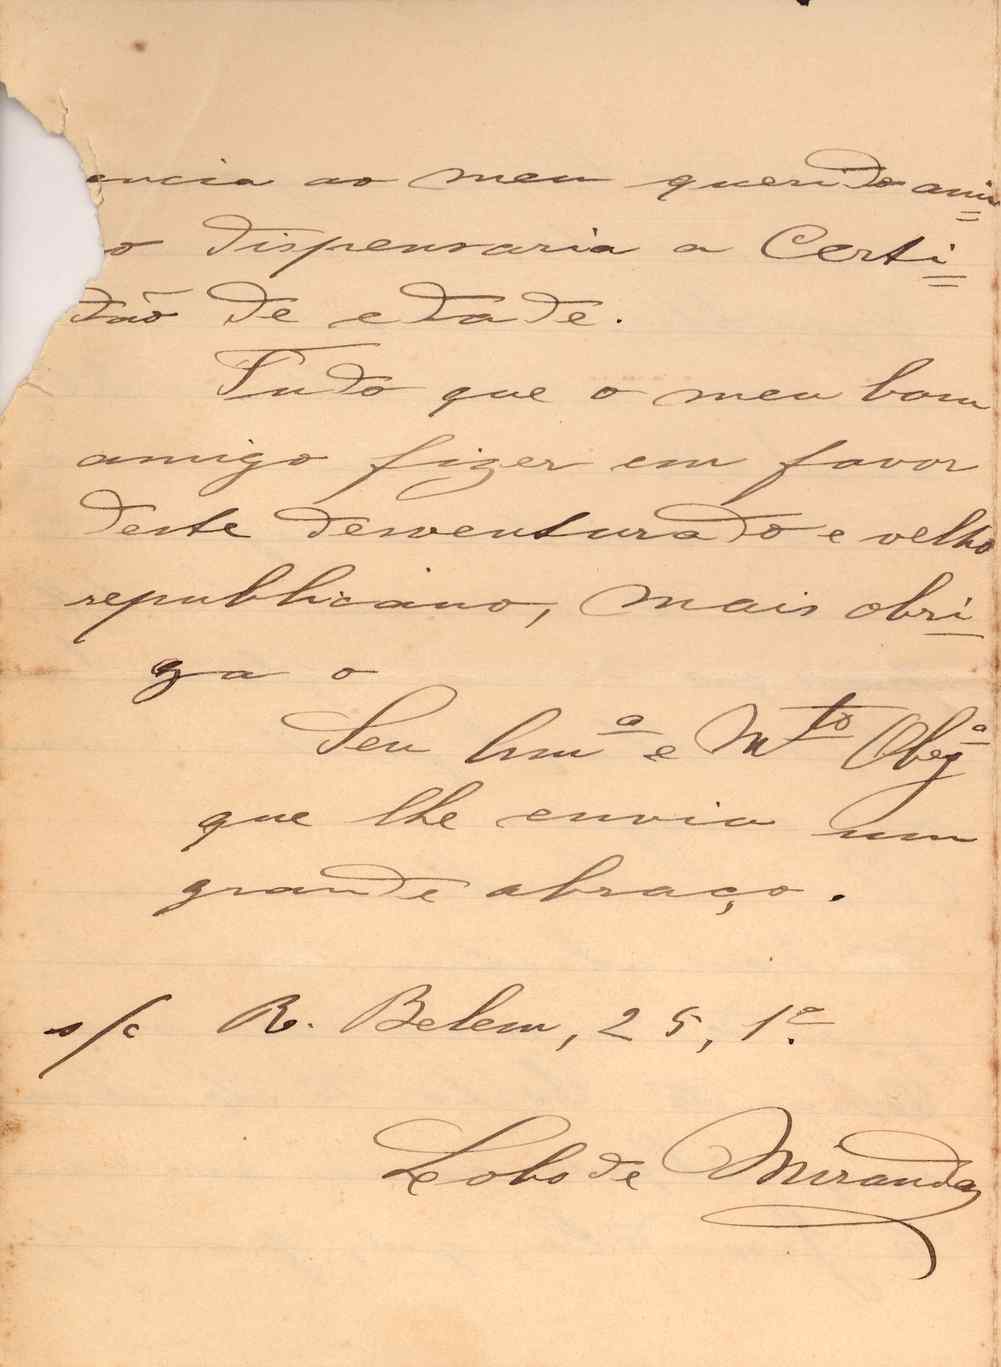 encia ao meu querido ami=
o dispensaria a Certi=
dão de edade.
Tudo que o meu bom
amigo fizer em favor
deste desventurado e velho
republicano, mais obri-
ga o
Seu e Mto Obgo
que lhe envia um
grande abraço.
s/c R. Belem, 25, 1º.
Lobo de Miranda